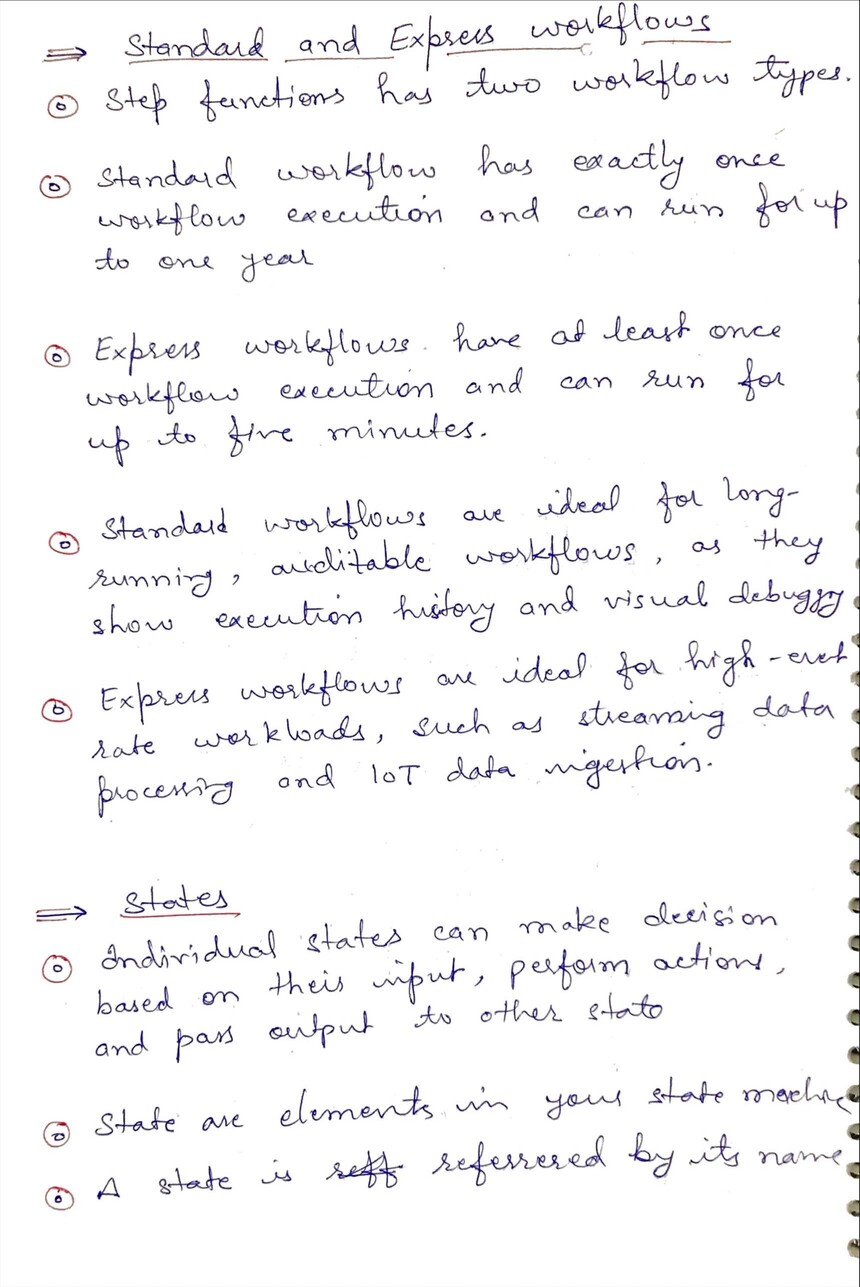 ⇒ Standard and Express workflows
Step functions has two workflow types.
Standard workflow has exactly once
workflow execution and can run for up
to one year
Express workflows have at least once
workflow execution and can run for
up to five minutes.
Standard workflows are ideal for long-
running, auditable workflows, as they
show execution history and visual debuggy
Express workflows are ideal for high-evet
rate workloads, such as streaming data
processing and IoT data ingestion.
⇒ States
Individual states can make decision
based on their input, perform actions,
and pass output to other state
State are elements in your state machine
A state is referrered by its name